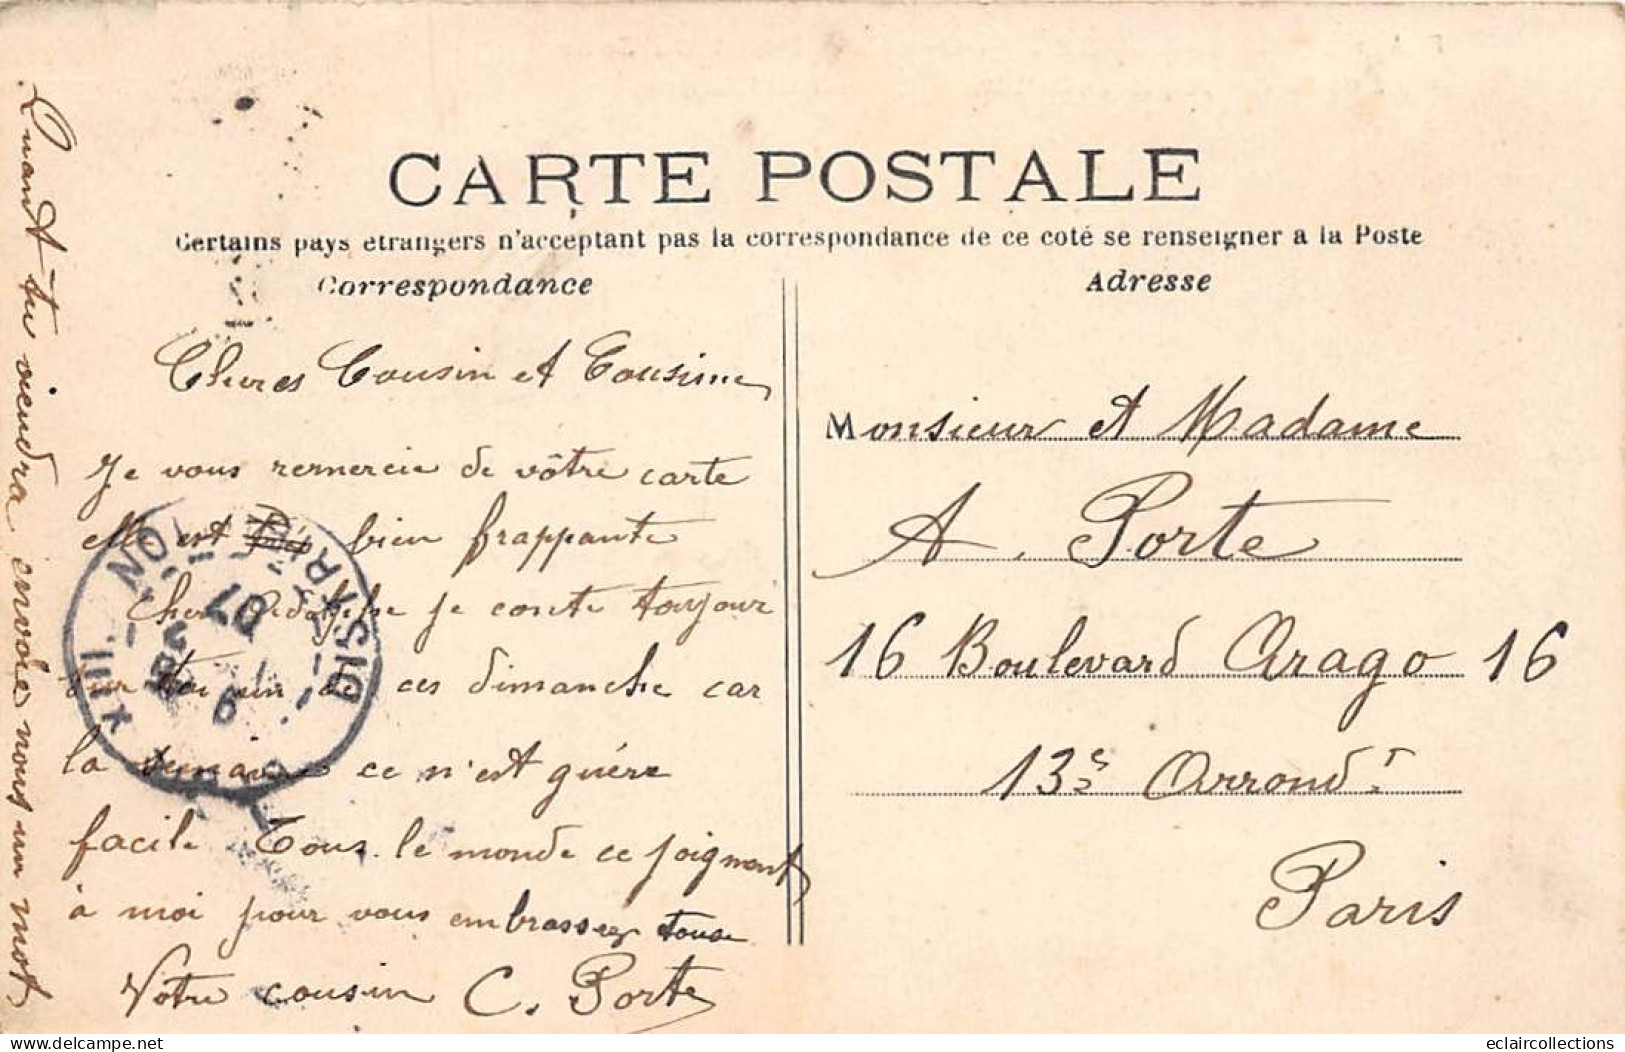 CARTE POSTALE
Certains pays etrangers n'acceptant pas la correspondance de ce coté se renseigner a la Poste
Correspondance
Chères Cousin et Cousine
Je vous remercie de vôtre carte
elle est bien frappante
Cher Adolphe je conte toujour
sur toi un de ces dimanche car
la semaine ce n'est guére
facile Tous le monde ce joignent
à moi pour vous embrasser tous
Votre cousin C. Porte
Quant tu viendra envoie nous un mot
Adresse
Monsieur et Madame
A. Porte
16 Boulevard Arago 16
13e Arrondt
Paris
DISTRIB
07
XIII
eclaircollections